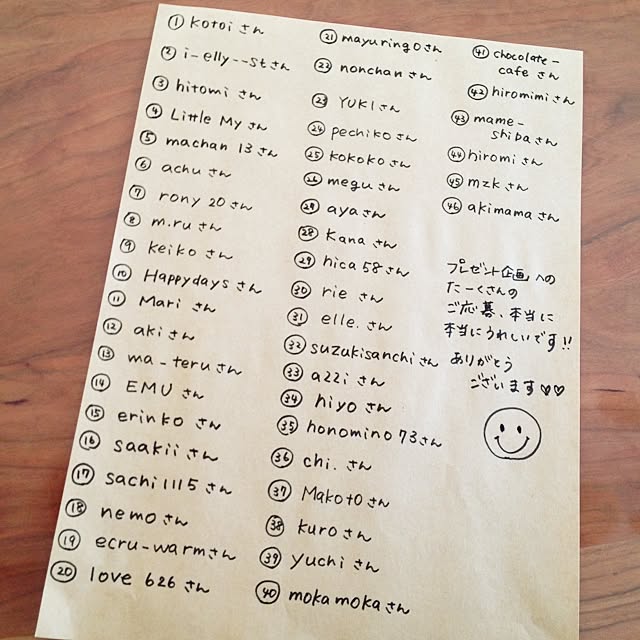 ① kotoi さん
② i-elly--st さん
③ hitomi さん
④ Little My さん
⑤ machan 13 さん
⑥ achu さん
⑦ rony 20 さん
⑧ m.ru さん
⑨ keiko さん
⑩ Happydays さん
⑪ Mari さん
⑫ aki さん
⑬ ma_teru さん
⑭ EMU さん
⑮ erinko さん
⑯ saakii さん
⑰ sachi1115 さん
⑱ nemo さん
⑲ ecru-warm さん
⑳ love 626 さん
㉑ mayuringo さん
㉒ nonchan さん
㉓ YUKI さん
㉔ pechiko さん
㉕ kokoko さん
㉖ megu さん
㉗ aya さん
㉘ kana さん
㉙ hica 58 さん
㉚ rie さん
㉛ elle. さん
㉜ suzukisanchi さん
㉝ azzi さん
㉞ hiyo さん
㉟ honomino 73 さん
㊱ chi. さん
㊲ Makoto さん
㊳ kuro さん
㊴ yuchi さん
㊵ mokamoka さん
㊶ chocolate-
cafe さん
㊷ hiromimi さん
㊸ mame-
shiba さん
㊹ hiromi さん
㊺ mzk さん
㊻ akimama さん
プレゼント企画への
たーくさんの
ご応募、本当に
本当にうれしいです!!
ありがとう
ございます♡♡